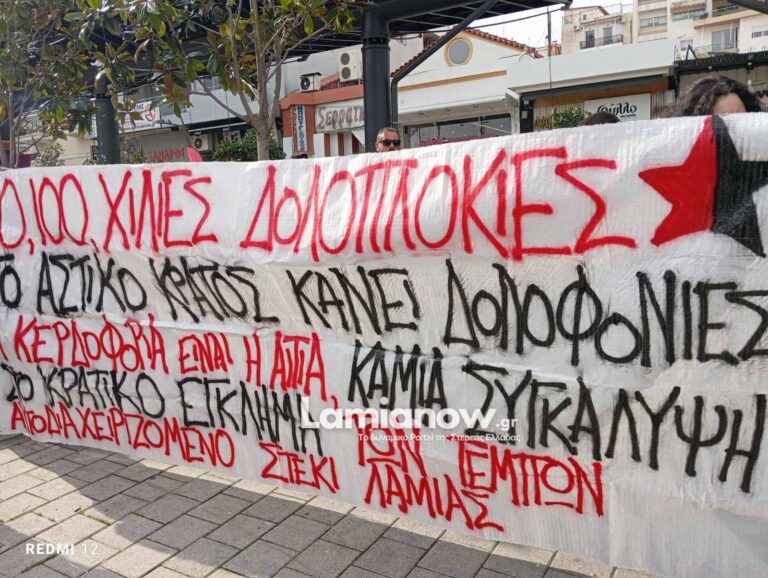 ΣΕΡΡΑΪΚΑ
φύλλο
0, 100, ΧΙΛΙΕΣ ΔΟΛΟΠΛΟΚΙΕΣ
ΤΟ ΑΣΤΙΚΟ ΚΡΑΤΟΣ ΚΑΝΕΙ ΔΟΛΟΦΟΝΙΕΣ
Η ΚΕΡΔΟΦΟΡΙΑ ΕΙΝΑΙ Η ΑΙΤΙΑ, ΚΑΜΙΑ ΣΥΓΚΑΛΥΨΗ
ΣΤΟ ΚΡΑΤΙΚΟ ΕΓΚΛΗΜΑ ΤΩΝ ΤΕΜΠΩΝ
ΑΥΤΟΔΙΑΧΕΙΡΙΖΟΜΕΝΟ ΣΤΕΚΙ ΛΑΜΙΑΣ
Lamianow.gr
Το δυναμικό Portal της Στερεάς Ελλάδας
REDMI 12